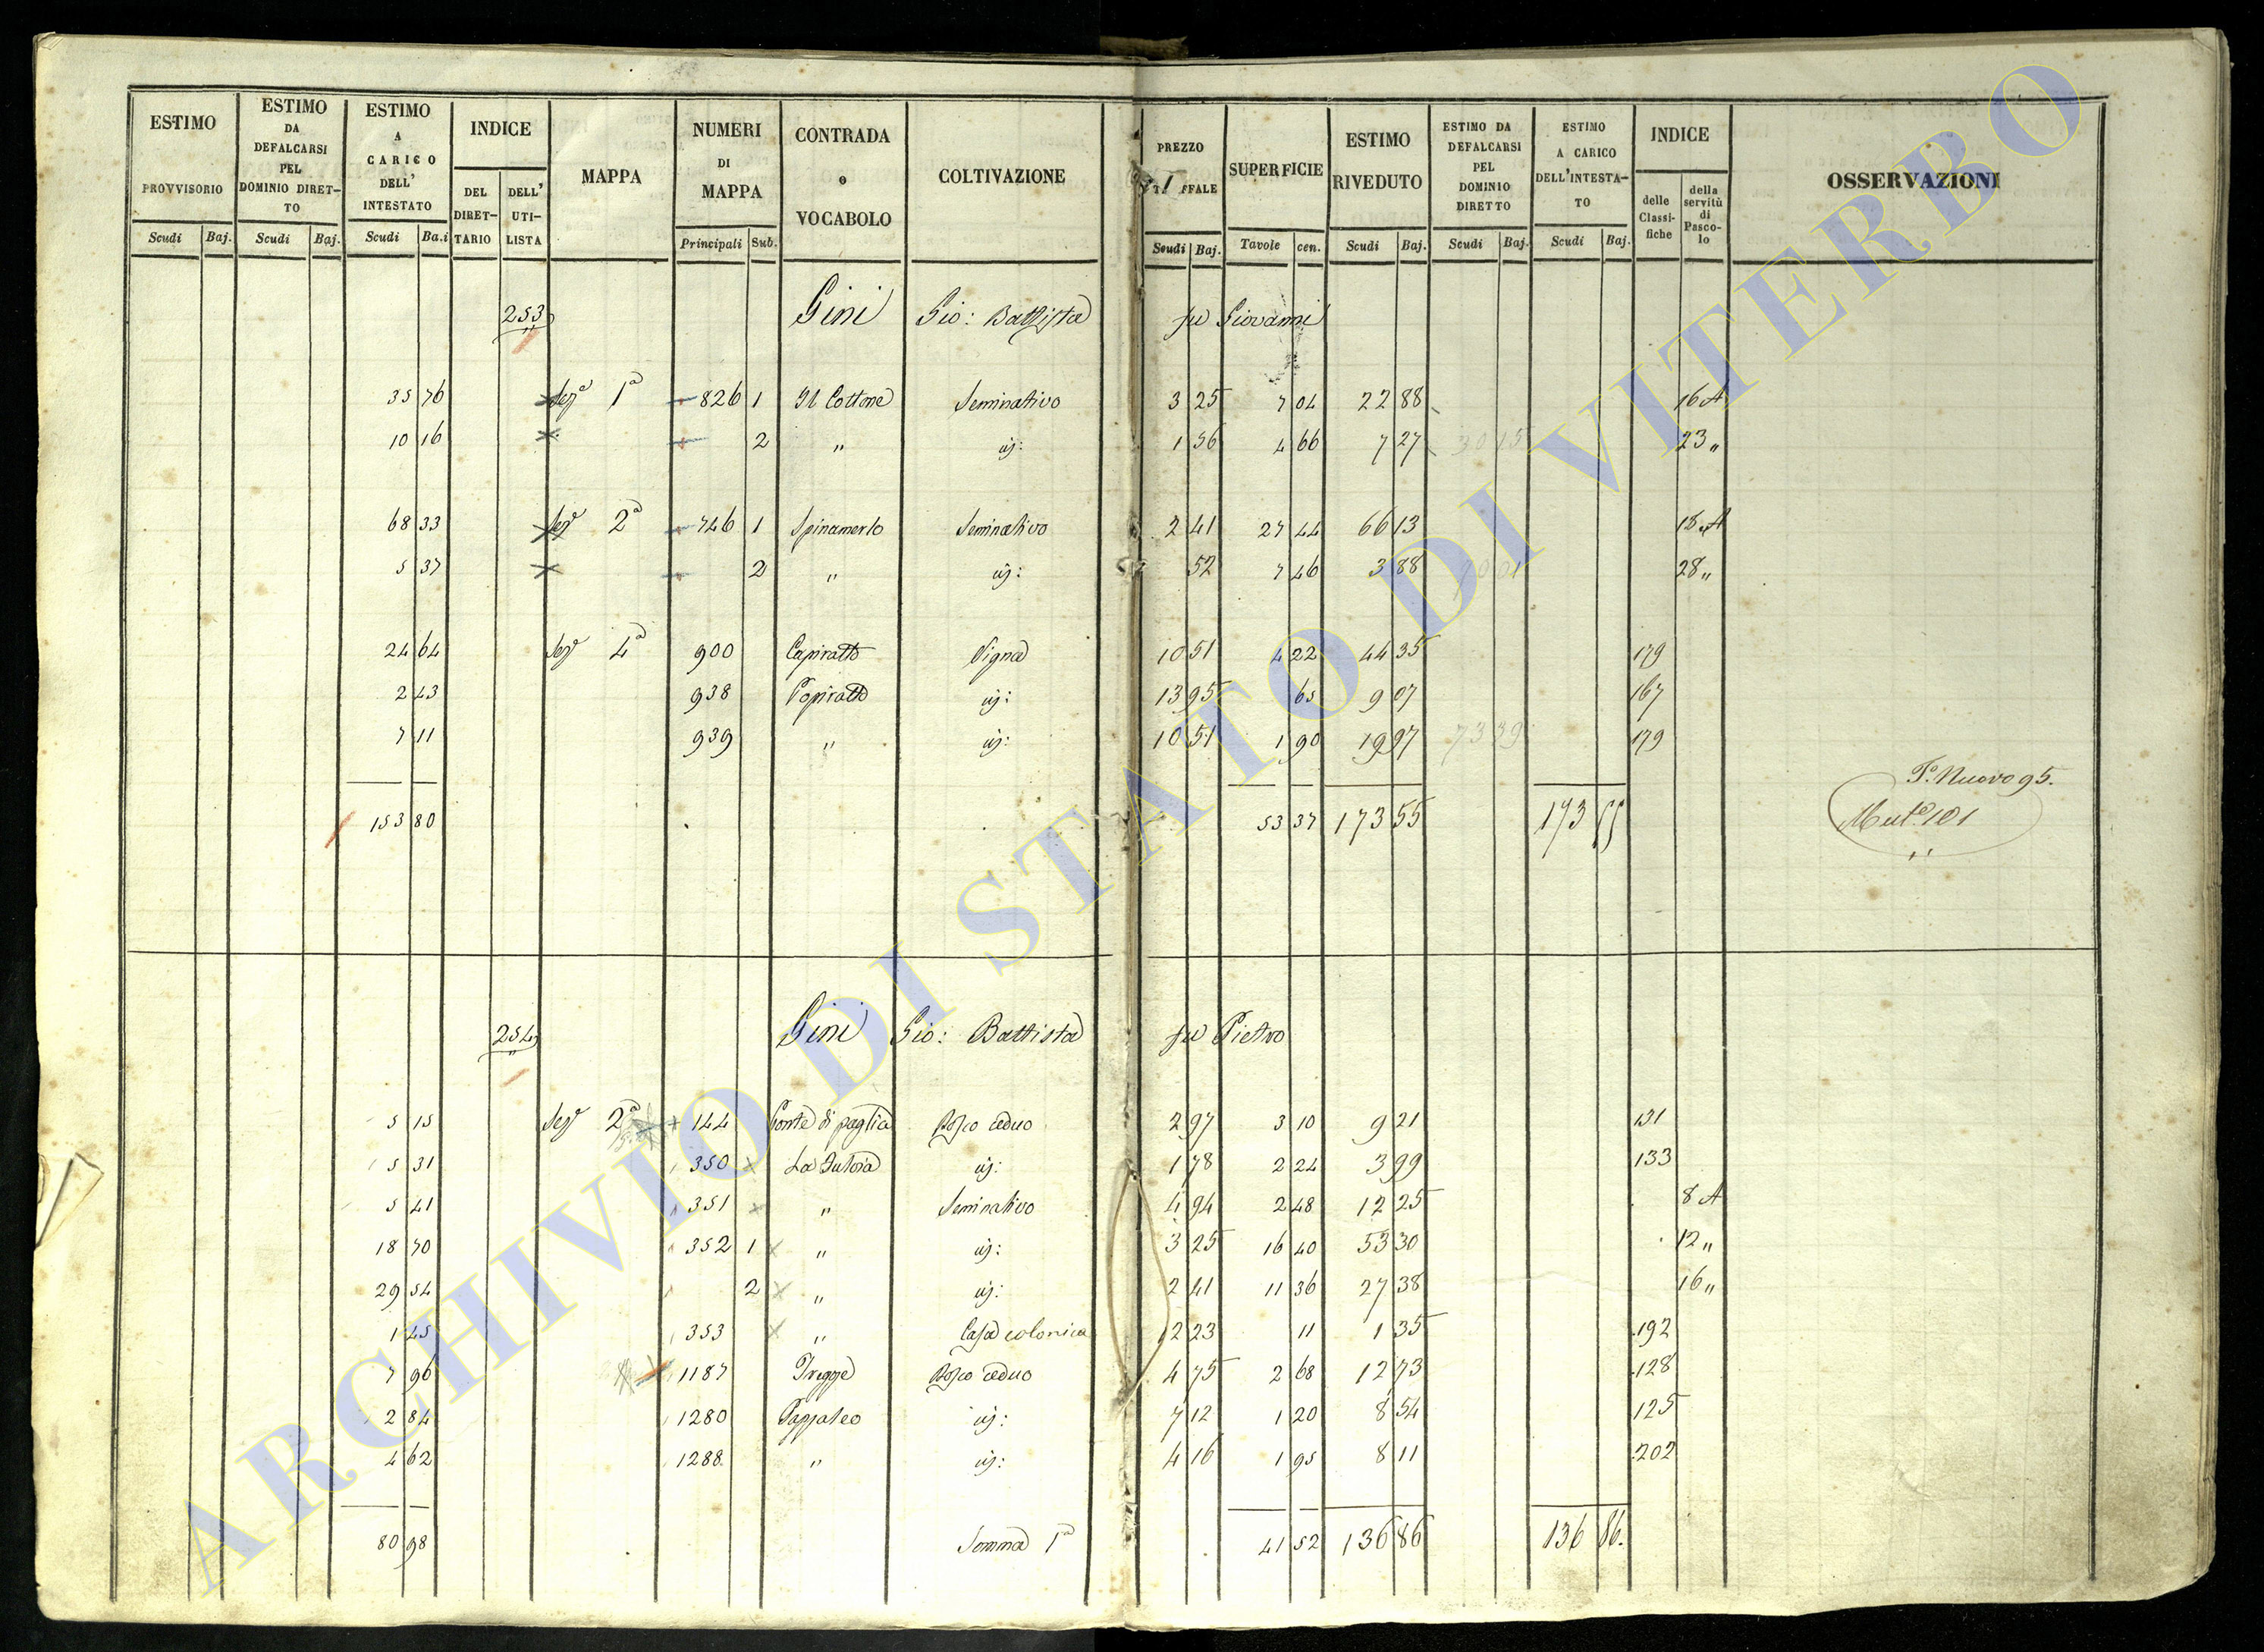 ESTIMO PROVVISORIO Scudi Baj.
ESTIMO DA DEFALCARSI PEL DOMINIO DIRETTO Scudi Baj.
ESTIMO A CARICO DELL' INTESTATO Scudi Ba.i
INDICE DEL DIRETTARIO DELL' UTILISTA
MAPPA
NUMERI DI MAPPA Principali Sub.
CONTRADA o VOCABOLO
COLTIVAZIONE
PREZZO Scudi Baj.
SUPERFICIE Tavole cen.
ESTIMO RIVEDUTO Scudi Baj.
ESTIMO DA DEFALCARSI PEL DOMINIO DIRETTO Scudi Baj.
ESTIMO A CARICO DELL'INTESTATO Scudi Baj.
INDICE delle Classifiche della servitù di Pascolo
OSSERVAZIONI
253 Gini Gio: Battista fu Giovanni
35 76 Sez.ª 1ª 826 1 Il Cottone Seminativo 3 25 7 04 22 88 16 A
10 16 2 " id: 1 56 4 66 7 27 30 15 23 "
68 33 Sez.ª 2ª 746 1 Spinamerlo Seminativo 2 41 27 44 66 13 18 A
5 37 2 " id: 52 7 46 3 88 70 01 28 "
24 64 Sez.ª 4ª 900 Capiratto Vigna 10 51 4 22 44 35 179
2 43 938 Popiratto id: 13 95 65 9 07 167
7 11 939 " id: 10 51 1 90 19 97 73 39 179
T.º Nuovo 95.
153 80 53 37 173 55 173 55 Mut.e 101
254 Gini Gio: Battista fu Pietro
5 15 Sez.ª 2ª 144 Ponte di paglia Bosco ceduo 2 97 3 10 9 21 131
5 31 350 id: 1 78 2 24 3 99 133
5 41 351 " Seminativo 4 94 2 48 12 25 8 A
18 70 352 1 " id: 3 25 16 40 53 30 12 "
29 54 2 " id: 2 41 11 36 27 38 16 "
1 45 353 " Casa colonica 12 23 11 1 35 192
7 96 1187 Treggie Bosco ceduo 4 75 2 68 12 73 128
2 84 1280 Pappaleo id: 7 12 1 20 8 54 125
4 62 1288 " id: 4 16 1 95 8 11 202
80 98 Somma 1ª 41 52 136 86 136 86.
ARCHIVIO DI STATO DI VITERBO